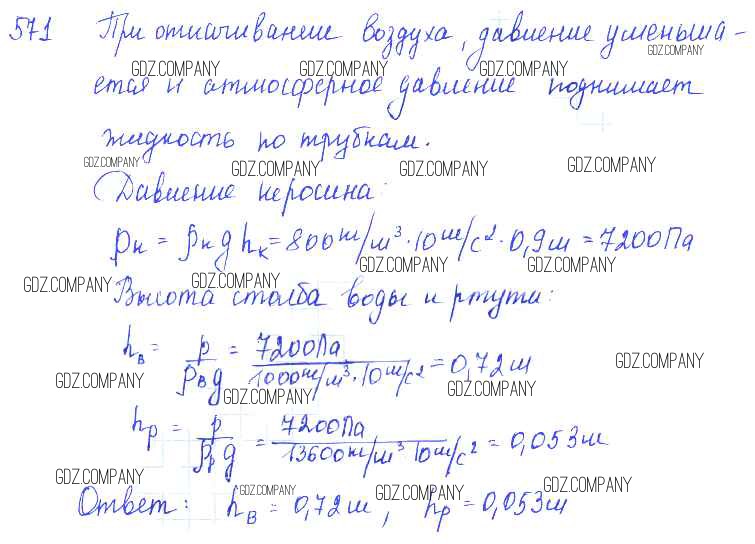 571 При откачивании воздуха, давление уменьша-
GDZ.COMPANY
GDZ.COMPANY GDZ.COMPANY GDZ.COMPANY
ется и атмосферное давление поднимает
жидкость по трубкам.
GDZ.COMPANY GDZ.COMPANY GDZ.COMPANY GDZ.COMPANY
Давление керосина:
pк = ρк g hк = 800 кг/м³ · 10 м/с² · 0,9 м = 7200 Па
GDZ.COMPANY GDZ.COMPANY
GDZ.COMPANY GDZ.COMPANY
Высота столба воды и ртути:
hв = p / ρв g = 7200 Па / 1000 кг/м³ · 10 м/с² = 0,72 м
GDZ.COMPANY
GDZ.COMPANY GDZ.COMPANY GDZ.COMPANY
hр = p / ρр g = 7200 Па / 13600 кг/м³ 10 м/с² = 0,053 м
GDZ.COMPANY GDZ.COMPANY GDZ.COMPANY GDZ.COMPANY
Ответ: hв = 0,72 м, hр = 0,053 м